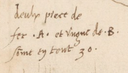 deulx piece de
fer .A. et vugne de .B.
some en tout 30.